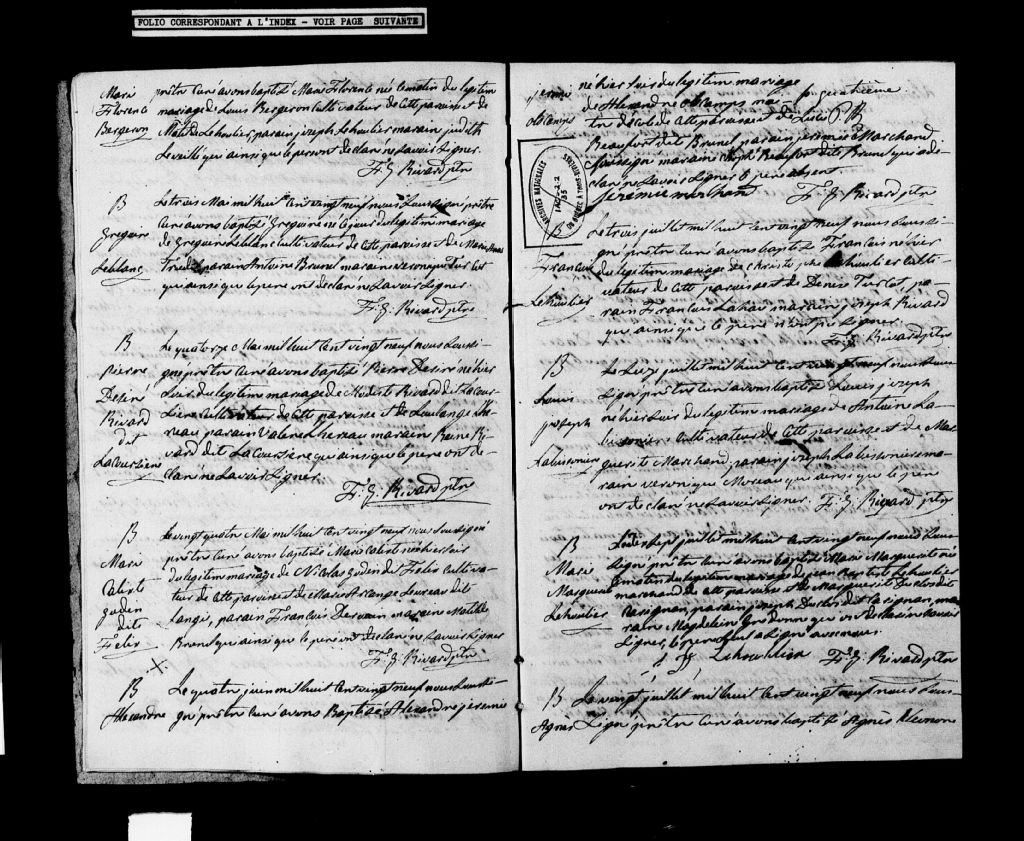 FOLIO CORRESPONDANT A L'INDEX - VOIR PAGE SUIVANTE
Marie
Florence
Bergeron
prêtre Curé avons baptisé Marie Florence née le matin du legitim
mariage de Louis Bergeron Cultivateur de Cette paroisse et de
Lehoulier, parain joseph Lehoulier maraine judith
Leveillé qui ainsi que le père ont déclaré ne savoir signer.
F. G. Rivard ptre
B
Gregoire
Leblanc
Le trois Mai mil huit Cent vingt neuf nous Soussigné prêtre
Curé avons baptisé Gregoire né le jour du legitim mariage
de Gregoire Leblanc Cultivateur de Cette paroisse et de Marie
parain Antoine Brunel maraine Veronique Turcot
qui ainsi que le père ont déclaré ne savoir signer.
F. G. Rivard ptre
B
Pierre
Desiré
Rivard
dit
Lacoursiere
Le quatorze Mai mil huit Cent vingt neuf nous Soussi-
gné prêtre Curé avons baptisé Pierre Desiré né hier
Soir du legitim mariage de Modeste Rivard dit Lacour-
siere Cultivateur de Cette paroisse et de Soulange
parain maraine Reine Ri-
vard dit Lacoursiere qui ainsi que le père ont dé-
claré ne savoir signer.
F. G. Rivard ptre
B
Marie
gudin
dit
Felix
Le vingt quatre Mai mil huit Cent vingt neuf nous Soussigné
prêtre Curé avons baptisé Marie née hier soir
du legitim mariage de Nicolas gudin dit Felix Cultiva-
teur de Cette paroisse et de Marie Ange dit
Lange, parain Francois maraine Mathilde
Brunel qui ainsi que le père ont déclaré ne savoir signer
F. G. Rivard ptre
B
Alexandre
Le quatre juin mil huit Cent vingt neuf nous Soussi-
gné prêtre Curé avons Baptisé Alexandre jeremie
jeremie
né hier soir du legitim mariage
de Alexandre
de Cette paroisse et de
Beaufort dit Brunel, parain jeremie Marchand
Soussigné maraine Beaufort dit Brunel qui a dé-
claré ne savoir signer le père absent
Jeremie marchan
F. G. Rivard ptre
quatrieme
P. B
ARCHIVES NATIONALES
B
Francois
Lehoulier
Le trois juillet mil huit Cent vingt neuf nous Soussi-
gné prêtre Curé avons baptisé Francois né hier
du legitim mariage de Christophe Lehoulier Culti-
vateur de Cette paroisse et de Denise Turcot, pa-
rain Francois maraine joseph Rivard
qui ainsi que le père n'ont pu signer.
F. G. Rivard ptre
B
Louis
joseph
Labissonière
Le juillet mil huit Cent vingt neuf nous Sous-
signé prêtre Curé avons baptisé Louis joseph
né hier soir du legitim mariage de Antoine La-
bissonière Cultivateur de Cette paroisse et de Mar-
guerite Marchand, parain joseph Labissonière ma-
raine Veronique Moreau qui ainsi que le père
ont déclaré ne savoir signer. F. G. Rivard ptre
B
Marie
Marguerite
Lehoulier
Le dix sept juillet mil huit Cent vingt neuf nous Sous-
signé prêtre Curé avons baptisé Marie Marguerite née
ce matin du legitim mariage de jean Baptiste Lehoulier
marchand de Cette paroisse et de Marguerite Duclos dit
Carignan, parain joseph Duclos dit Carignan, ma-
raine Magdeleine qui ont déclaré ne savoir
signer, le père a signé avec nous.
Lehoulllier F. G. Rivard ptre
B
Agnès
Le vingt juillet mil huit Cent vingt neuf nous Sous-
signé prêtre Curé avons baptisé Agnès Eleonore